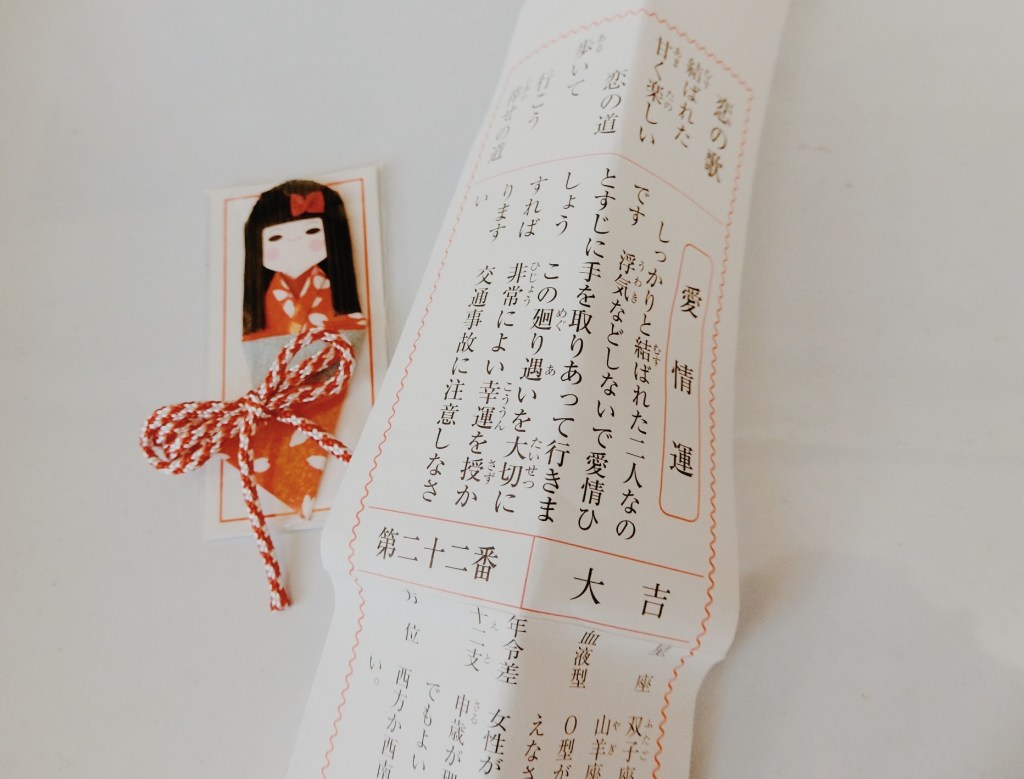 恋の歌
結ばれた
甘く楽しい
恋の道
歩いて
行こう
せの道
愛情運
しっかりと結ばれた二人なの
です 浮気などしないで愛情ひ
とすじに手を取りあって行きま
しょう この廻り遇いを大切に
すれば 非常によい幸運を授か
ります 交通事故に注意しなさ
い
大吉
第二十二番
星座 双子座
山羊座
血液型 O型が
えなさ
年令差 女性が
十二支 申歳が
でもよい
位 西方か西南
い。